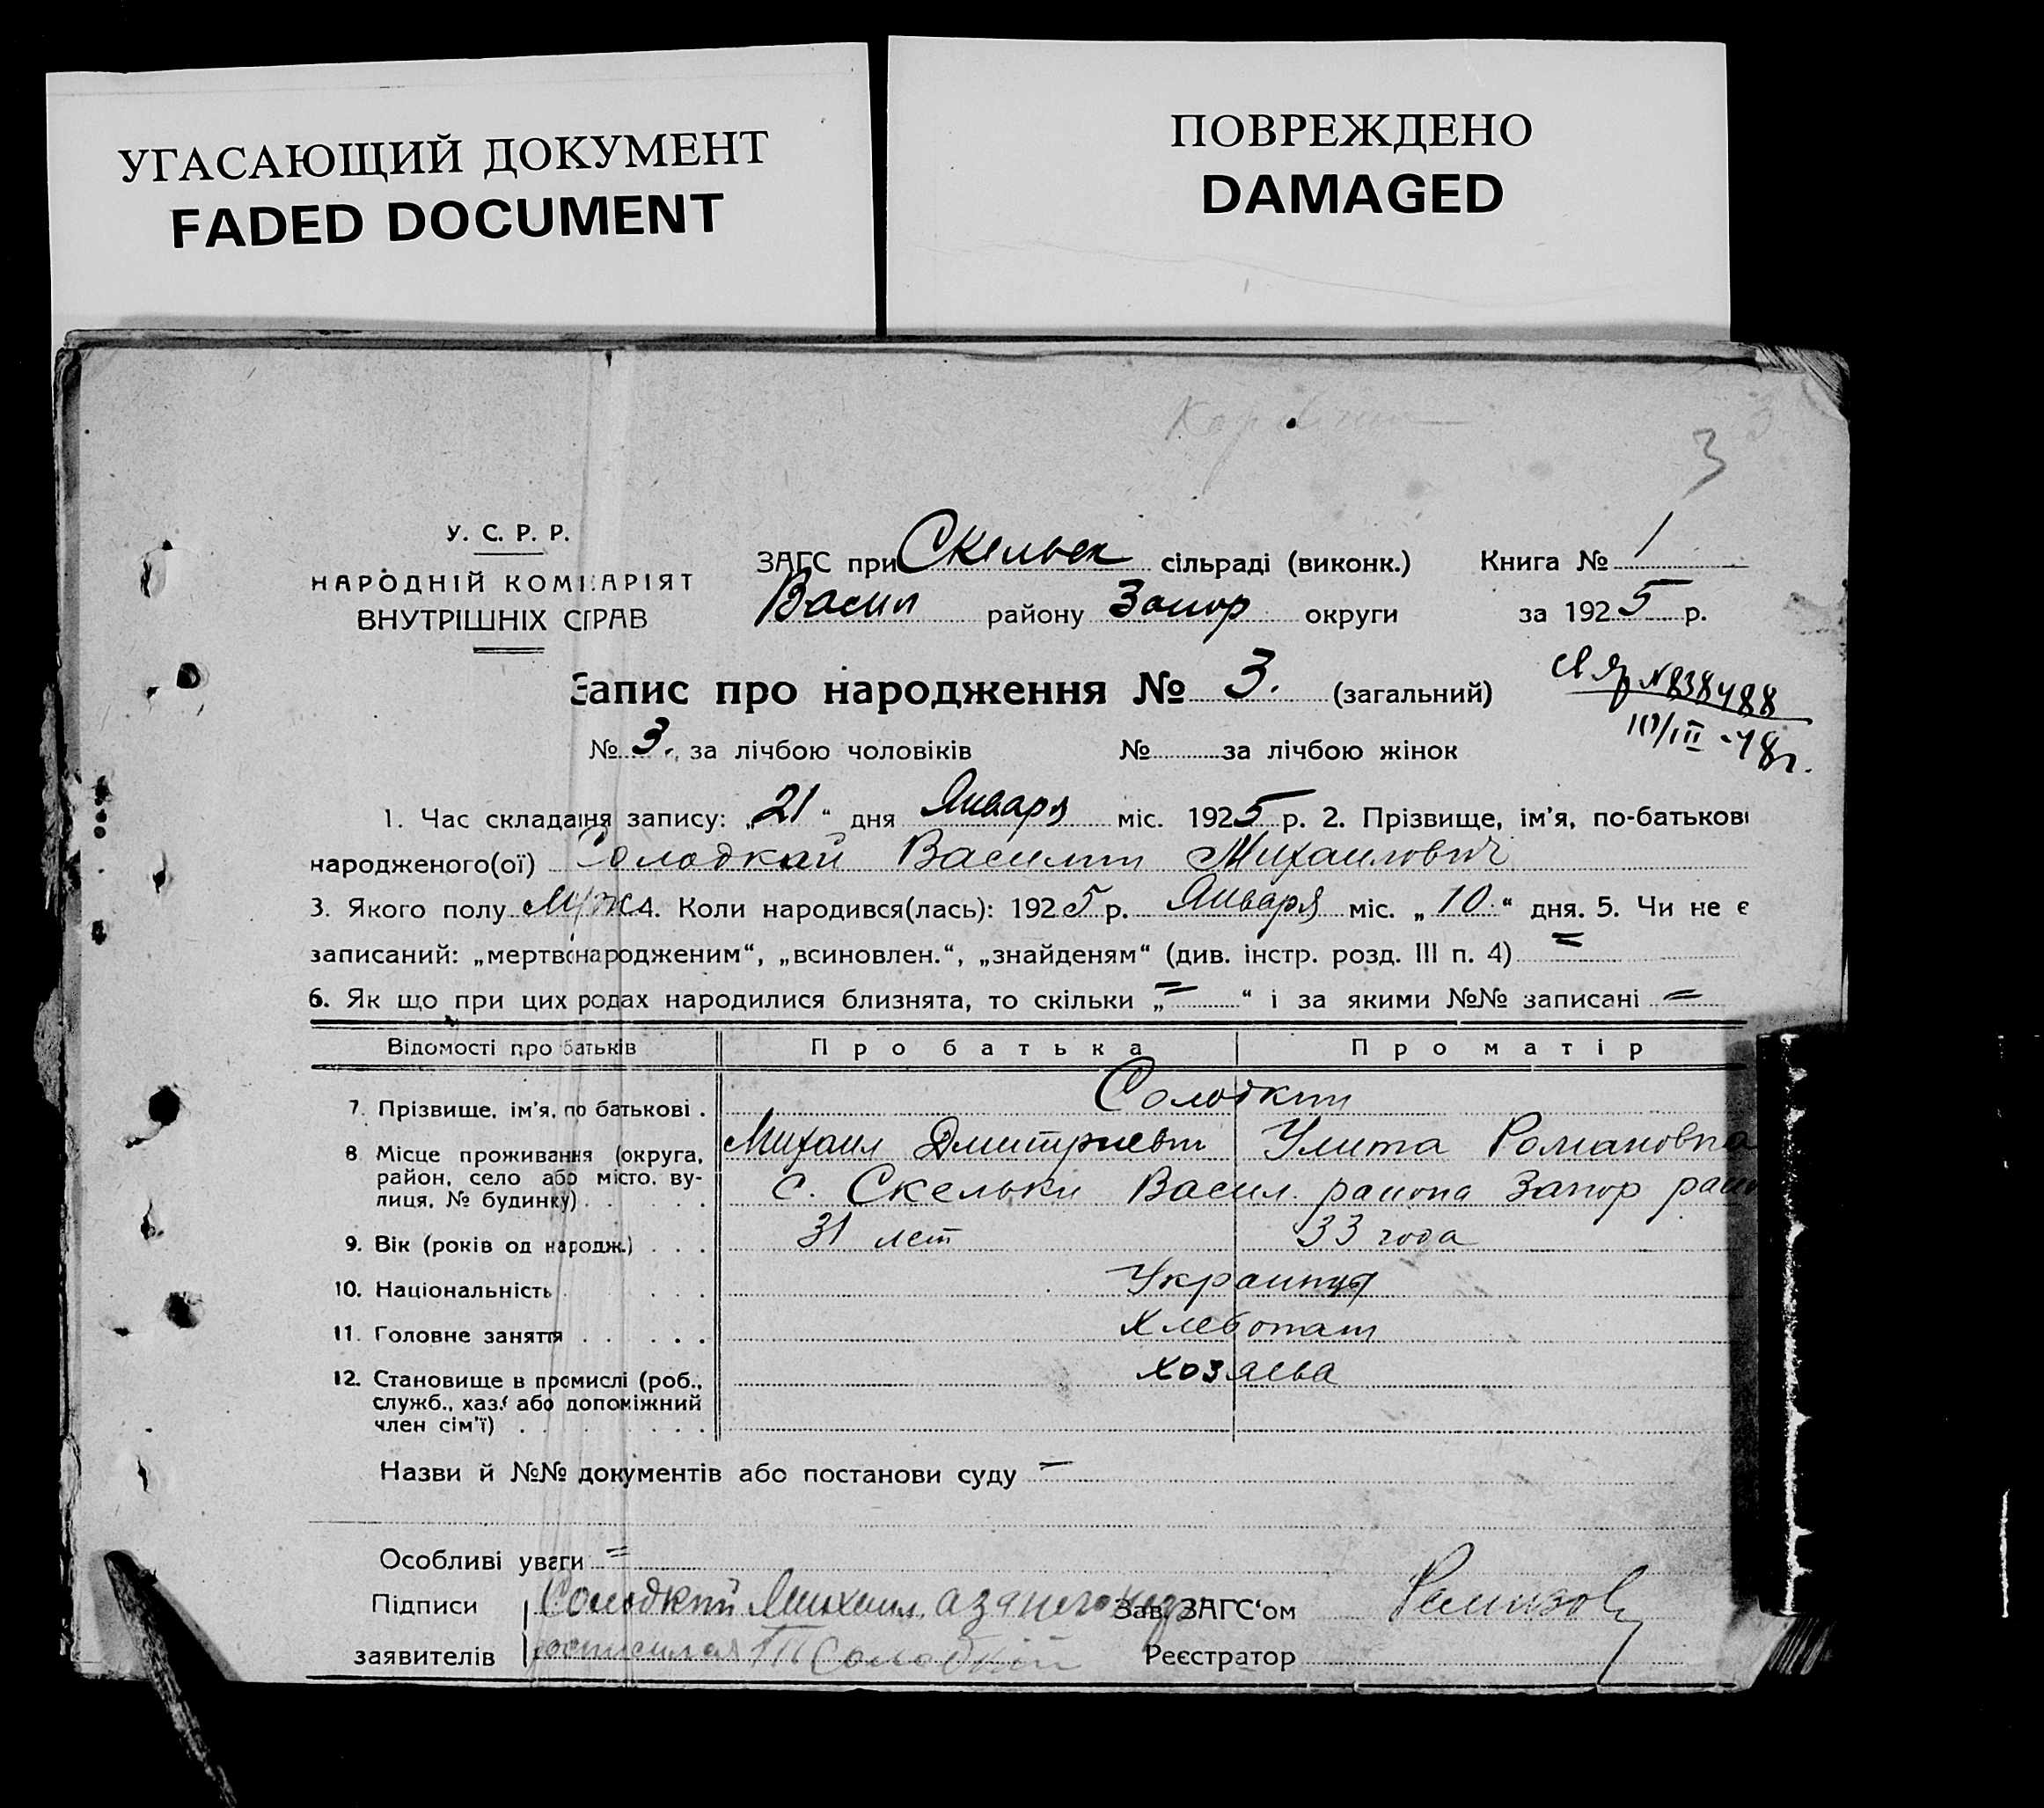 УГАСАЮЩИЙ ДОКУМЕНТ
FADED DOCUMENT
ПОВРЕЖДЕНО
DAMAGED
3
У. С. Р. Р.
НАРОДНІЙ КОМІСАРІЯТ
ВНУТРІШНІХ СПРАВ
ЗАГС при Скельск сільраді (виконк.) Книга № 1
Васил району Запор округи за 1925 р.
Запис про народження № 3. (загальний)
№ 3. за лічбою чоловіків № за лічбою жінок
№ 838488
10/III - 48 г.
1. Час складання запису: „21“ дня Января міс. 1925 р. 2. Прізвище, ім'я, по-батькові
народженого(ої) Солодкий Василий Михайлович
3. Якого полу Муж 4. Коли народився(лась): 1925 р. Января міс. „10“ дня. 5. Чи не є
записаний: „мертвонародженим“, „всиновлен.“, „знайденям“ (див. інстр. розд. III п. 4) =
6. Як що при цих родах народилися близнята, то скільки „=“ і за якими №№ записані =
Відомості про батьків Про батька Про матір
7. Прізвище, ім'я, по батькові . Солодкий
Михаил Дмитриевич Улита Романовна
8 Місце проживання (округа, район, село або місто, вулиця, № будинку) с. Скельки Васил. района Запор
9. Вік (років од народж.) . . . 31 лет 33 года
10. Національність . . . Украинцы
11. Головне заняття . . . . . Хлебопаш
12. Становище в промислі (роб., служб., хаз. або допоміжний член сім'ї) хозяева
Назви й №№ документів або постанови суду –
Особливі уваги =
Підписи Солодкий Михаил Зав. ЗАГС'ом Ремизов
заявителів Солодкий Реєстратор